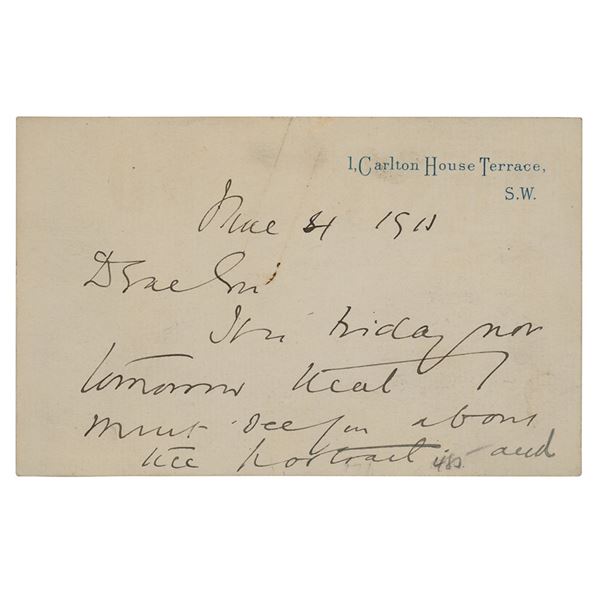 1, Carlton House Terrace,
S.W.
Dear Sir
It is Friday not
tomorrow that I
must see you about
the portrait and